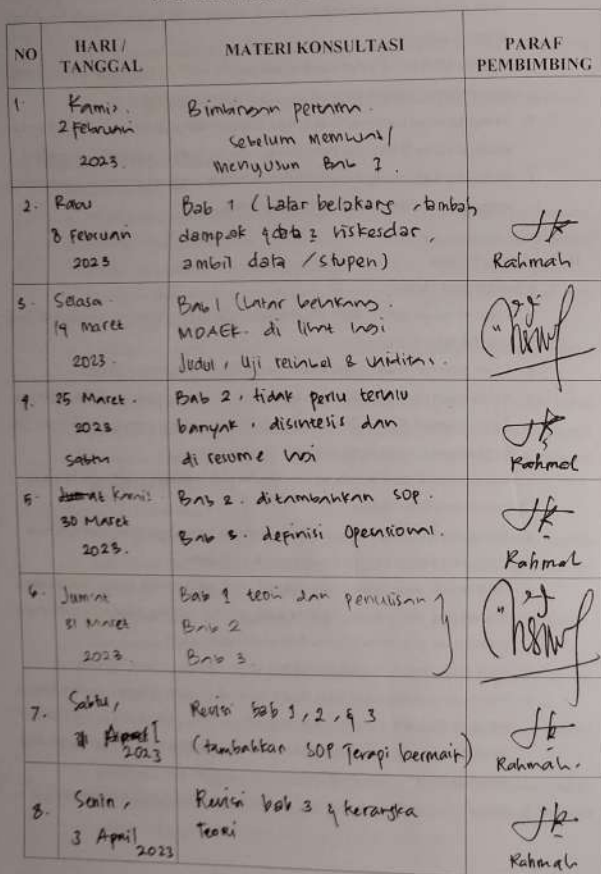 NO
HARI /
TANGGAL
MATERI KONSULTASI
PARAF
PEMBIMBING
1.
Kamis.
2 Februari
2023.
Bimbingan pertama.
sebelum membuat/
menyusun Bab 1.
2.
Rabu
8 Februari
2023
Bab 1 (Latar belakang, tambah
dampak & data riskesdar,
ambil data / stupen)
Rahmah
3.
Selasa
14 Maret
2023.
Bab 1 (Latar belakang.
MDAEK. di lihat lagi
Judul, Uji relinbel & validitas.
4.
25 Maret.
2023
Sabtu
Bab 2, tidak perlu terlalu
banyak, disintesis dan
di resume lagi
Rahmah
5.
Kamis
30 Maret
2023.
Bab 2. ditambahkan SOP.
Bab 3. definisi Operasional.
Rahmah
6.
Jumat
31 Maret
2023.
Bab 1 teori dan penulisan
Bab 2
Bab 3.
7.
Sabtu,
1 April
2023
Revisi bab 1, 2, & 3
(tambahkan SOP Terapi bermain)
Rahmah.
8.
Senin,
3 April
2023
Revisi bab 3 & kerangka
Teori
Rahmah